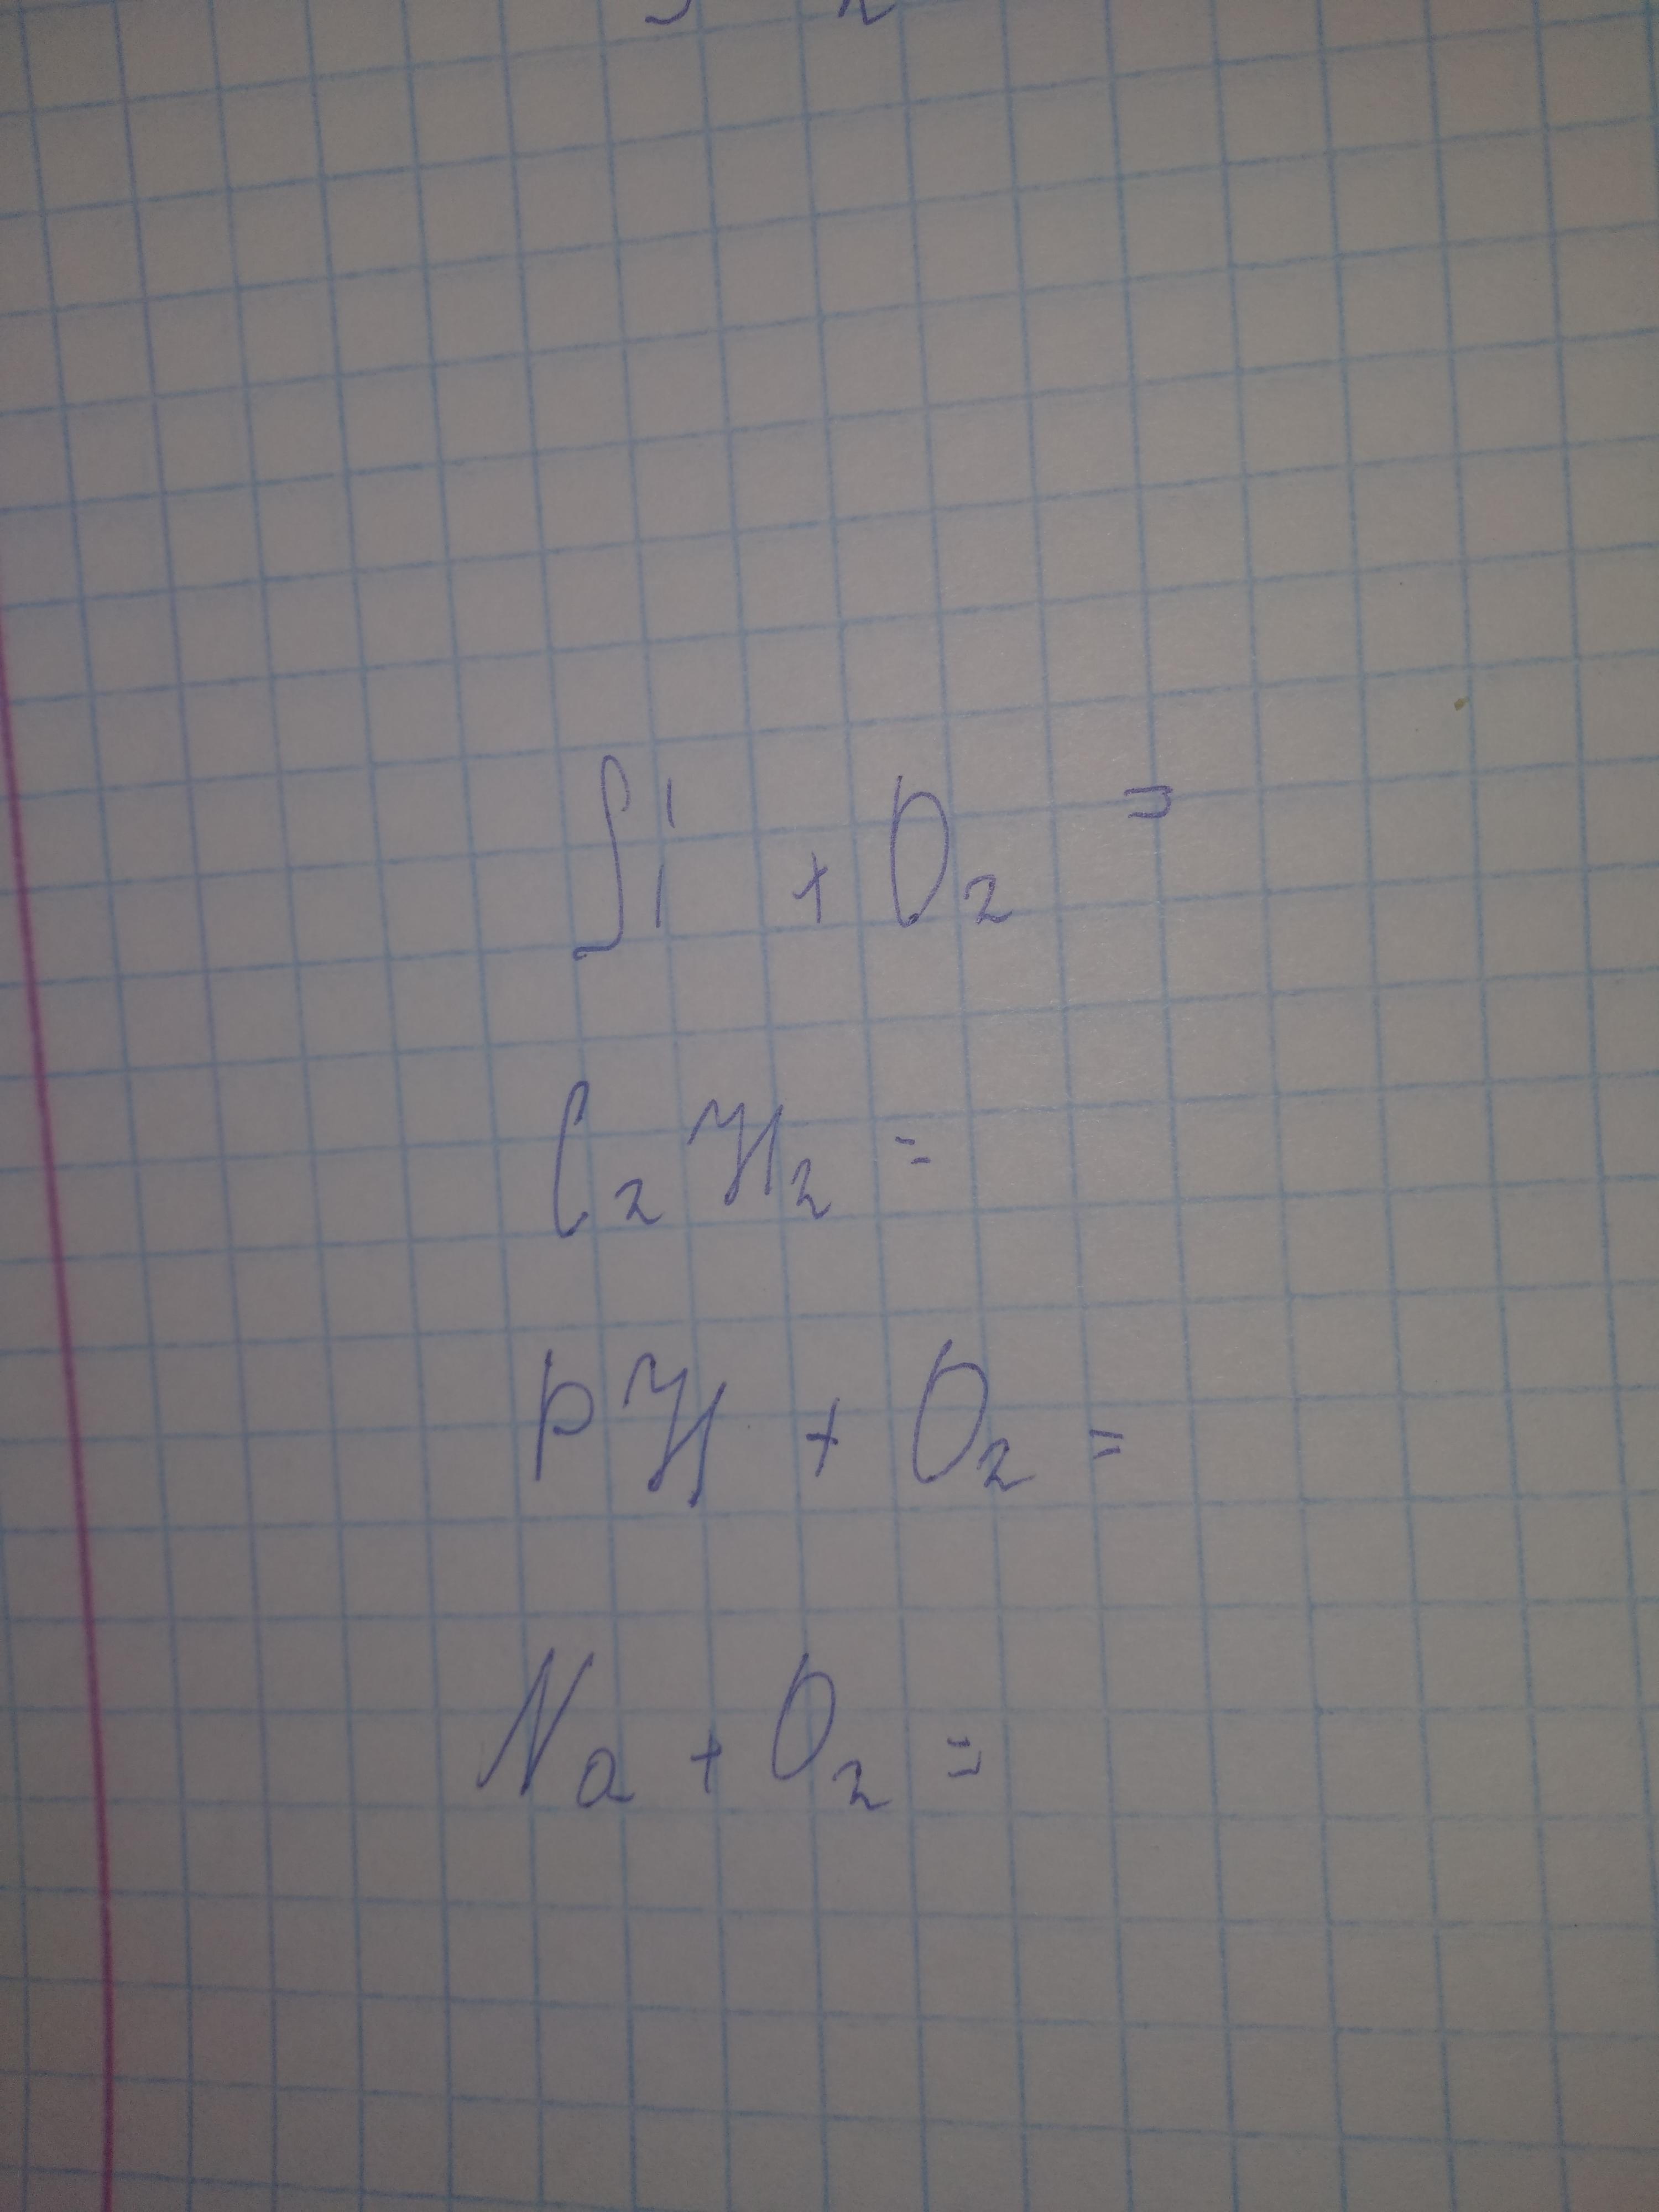 Si + O₂ =
C₂H₂ =
PH + O₂ =
Na + O₂ =